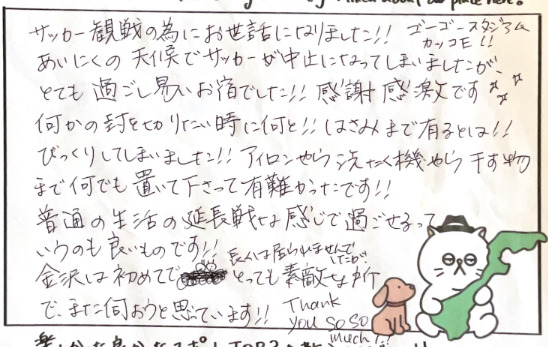 サッカー観戦の為にお世話になりました!! ゴーゴースタジアム
カッコE!!
あいにくの天候でサッカーが中止になってしまいましたが、
とても過ごし易いお宿でした!! 感謝感激です
何かの封を切りたい時に何と!! はさみまで有るとは!!
びっくりしてしまいました!! アイロンやら洗たく機やら干す物
まで何でも置いて下さって有難かったです!!
普通の生活の延長戦な感じで過ごせるって
いうのも良いものです!!
長くは居られませんで
したが
金沢は初めてで とっても素敵な所
で、また伺おうと思っています!!
Thank
you so so
much!!